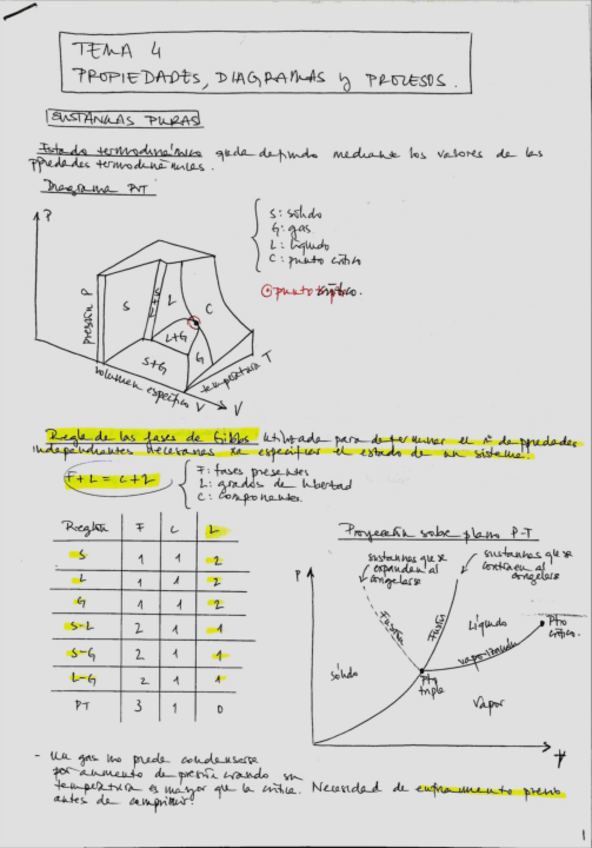 TEMA 4
PROPIEDADES, DIAGRAMAS y PROCESOS.
SUSTANCIAS PURAS
Estado termodinámico queda definido mediante los valores de las
ppiedades termodinámicas.
Diagrama PVT
P
S: sólido
G: gas
L: líquido
C: punto crítico
crítico.
presión P
S
S+L
L
C
L+G
G
S+G
volumen específico V
temperatura T
V
Regla de las fases de Gibbs utilizada para determinar el nº de ppiedades
independientes necesarias xa especificar el estado de un sistema.
F+L = C+2
F: fases presentes
L: grados de libertad
C: componentes.
Región F C L
S 1 1 2
L 1 1 2
G 1 1 2
S-L 2 1 1
S-G 2 1 1
L-G 2 1 1
PT 3 1 0
Proyección sobre plano P-T
sustancias que se
expanden al
congelarse
sustancias que se
contraen al
congelarse
P
Fusión
Fusión
Líquido
Pto
crítico.
vaporización
sólido
Pto
triple
Vapor
T
- Un gas no puede condensarse
por aumento de presión cuando su
temperatura es mayor que la crítica. Necesidad de enfriamiento previo
antes de comprimir.
1